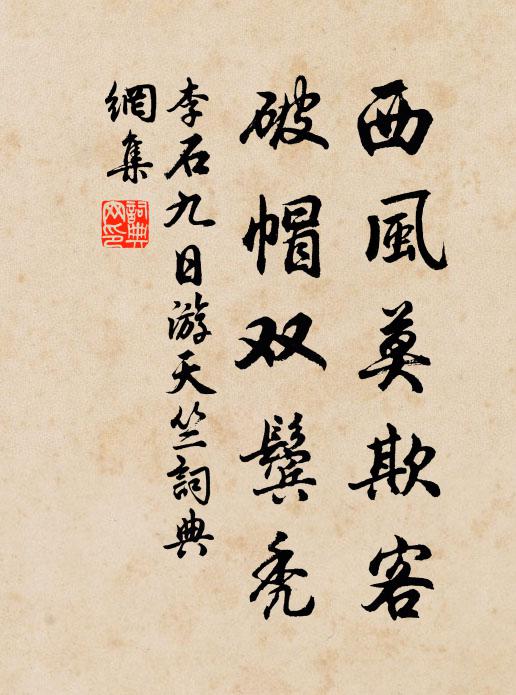 西風莫欺客
破帽双鬢秃
李石九日游天竺詞典
網集
詞典
网印